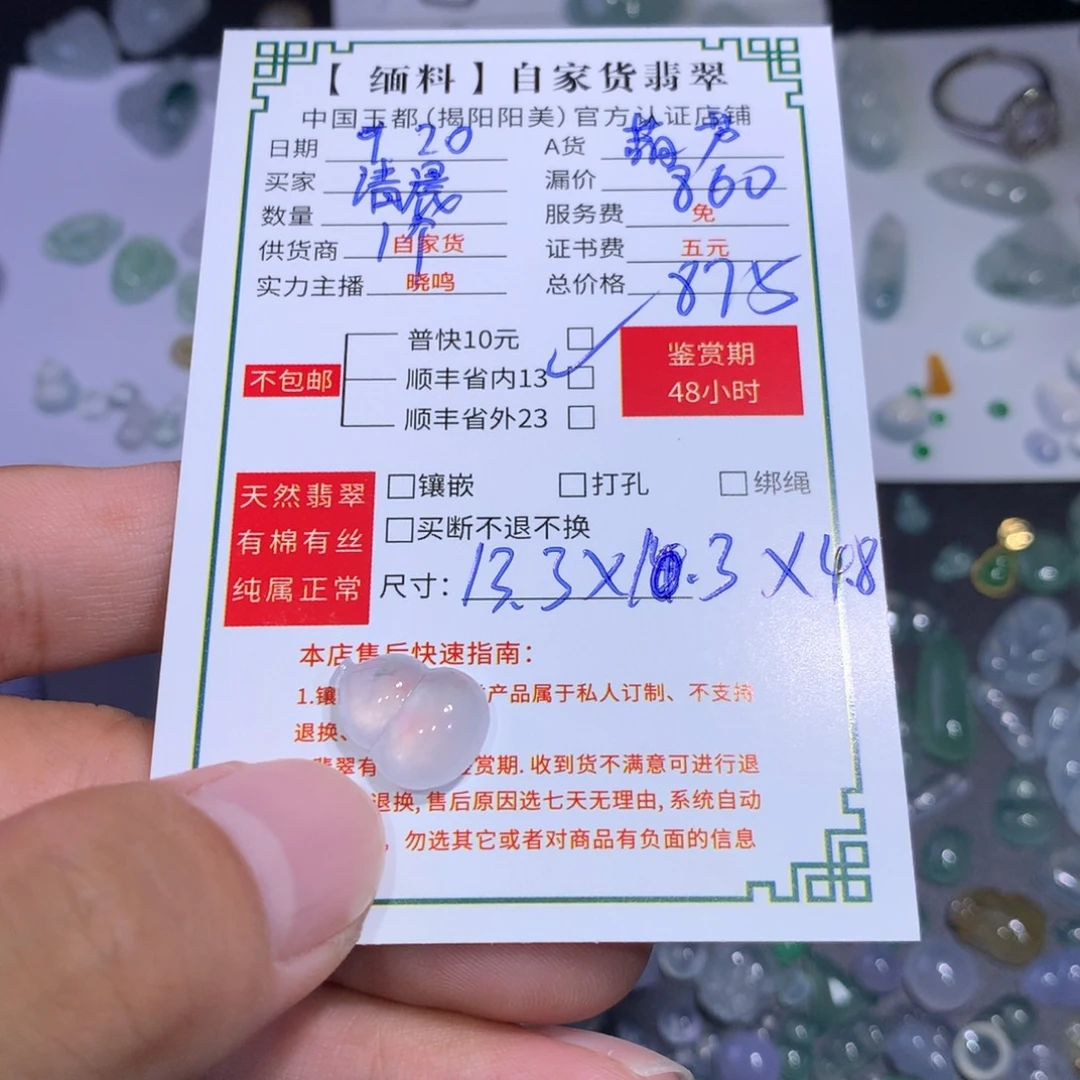 【 缅料 】自家货翡翠
中国玉都(揭阳阳美)官方认证店铺
日期 9 20 A货 葫芦
买家 清晨 漏价 860
数量 1个 服务费 免
供货商 自家货 证书费 五元
实力主播 晓鸣 总价格 875
普快10元
不包邮 顺丰省内13
顺丰省外23
鉴赏期
48小时
天然翡翠
有棉有丝
纯属正常
镶嵌 打孔 绑绳
买断不退不换
尺寸: 13.3X10.3X4.8
本店售后快速指南:
1.镶 产品属于私人订制、不支持
退换、
翡翠有 鉴赏期.收到货不满意可进行退
退换,售后原因选七天无理由,系统自动
,勿选其它或者对商品有负面的信息